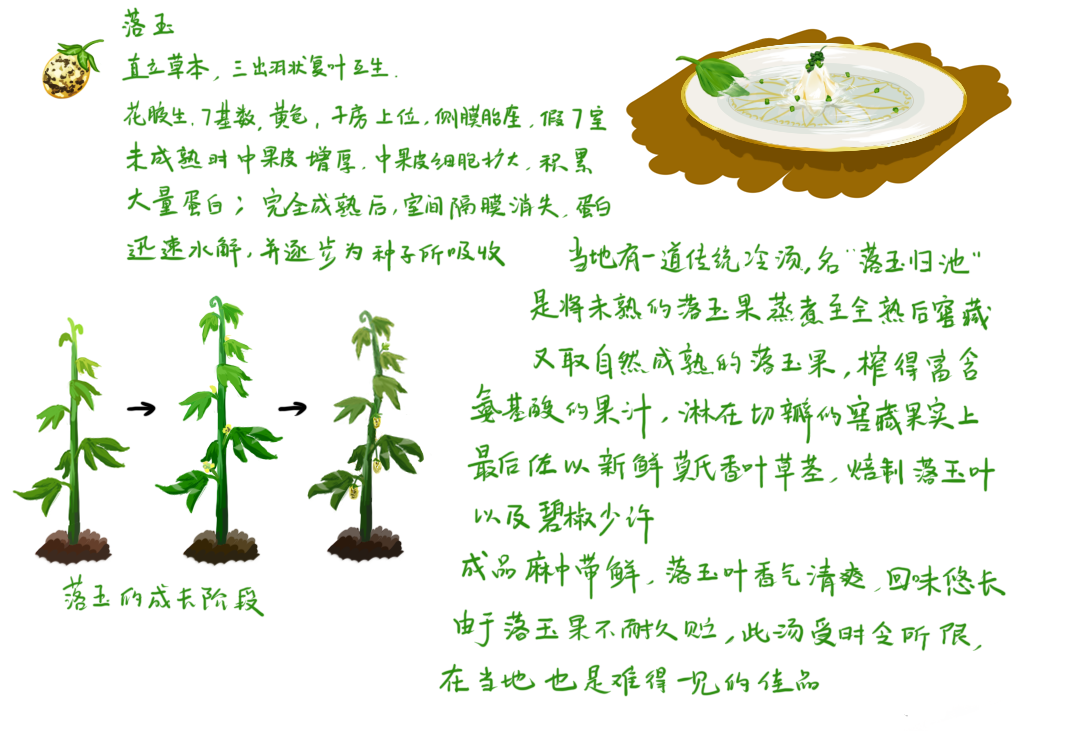 落玉
直立草本，三出羽状复叶互生.
花腋生.7基数，黄色，子房上位，侧膜胎座，假7室
未成熟时中果皮增厚.中果皮细胞扩大，积累
大量蛋白；完全成熟后，室间隔膜消失.蛋白
迅速水解，并逐步为种子所吸收
当地有一道传统冷汤，名“落玉归池”
是将未熟的落玉果蒸煮至全熟后窖藏
又取自然成熟的落玉果，榨得富含
氨基酸的果汁，淋在切瓣的窖藏果实上
最后佐以新鲜莫氏香叶草茎，焙制落玉叶
以及碧椒少许
成品麻中带鲜，落玉叶香气清爽，回味悠长
由于落玉果不耐久贮，此汤受时令所限，
在当地也是难得一见的佳品
落玉的成长阶段